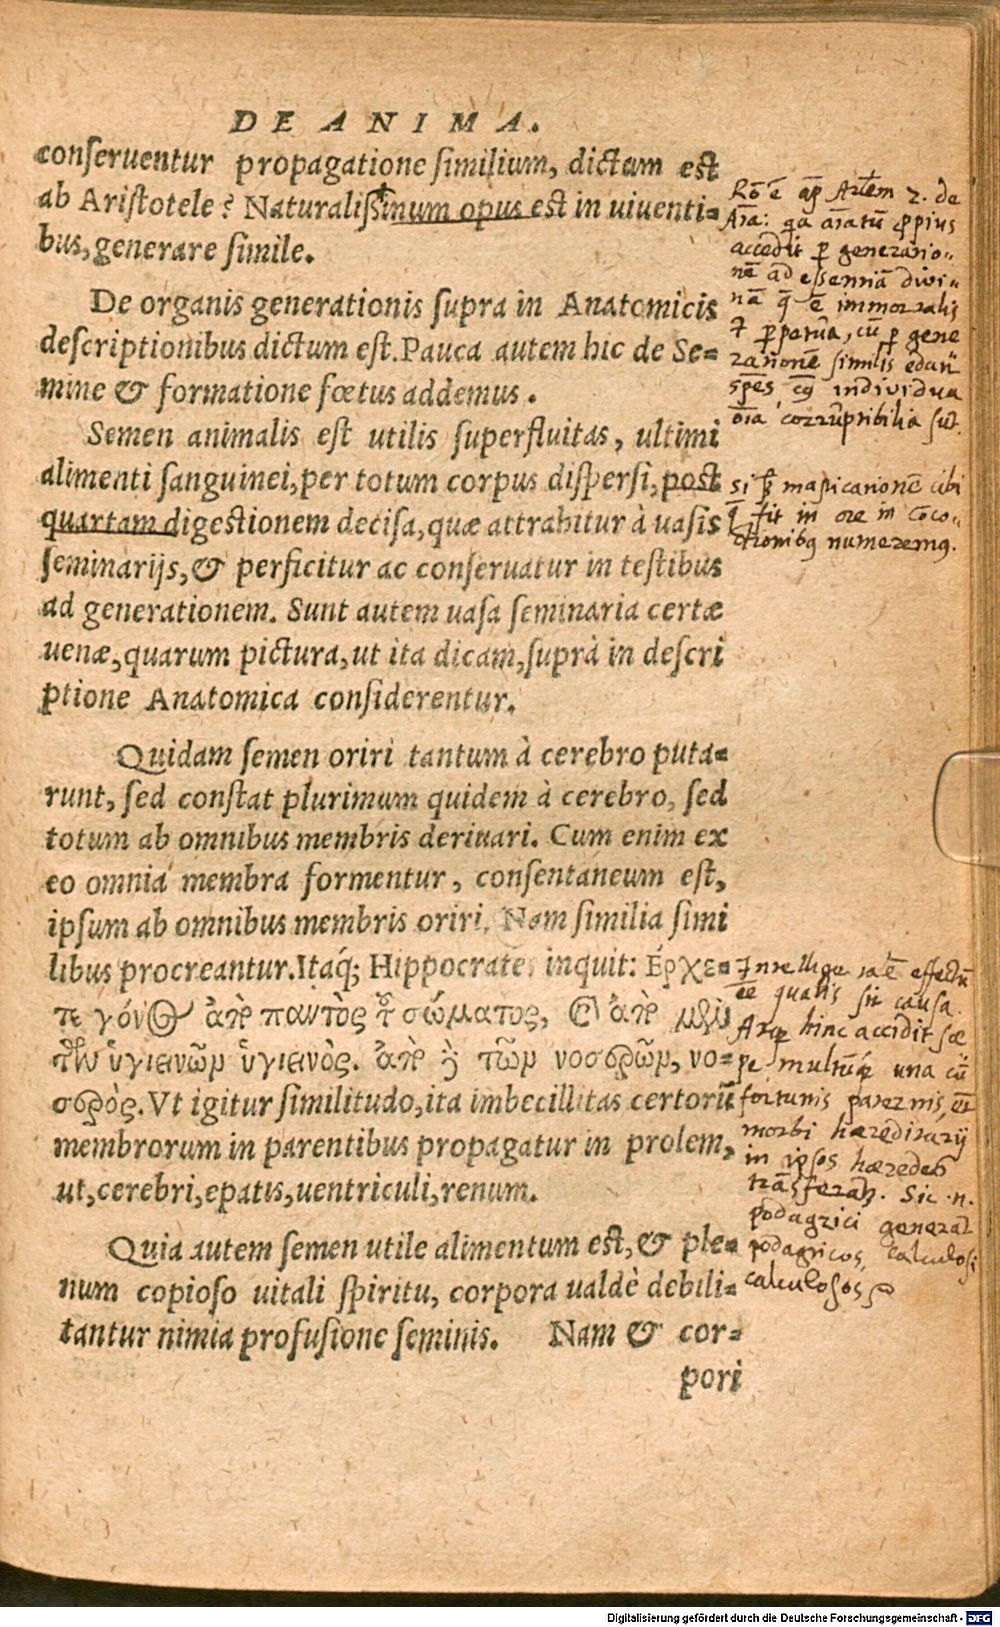 DE ANIMA.
conseruentur propagatione similium, dictum est
ab Aristotele? Naturalissimum opus est in uiuenti=
bus, generare simile.
De organis generationis supra in Anatomicis
descriptionibus dictum est. Pauca autem hic de Se=
mine & formatione fœtus addemus.
Semen animalis est utilis superfluitas, ultimi
alimenti sanguinei, per totum corpus dispersi, post
quartam digestionem decisa, quæ attrahitur à uasis
seminarijs, & perficitur ac conseruatur in testibus
ad generationem. Sunt autem uasa seminaria certæ
uenæ, quarum pictura, ut ita dicam, suprà in descri
ptione Anatomica considerentur.
Quidam semen oriri tantum à cerebro puta=
runt, sed constat plurimum quidem à cerebro, sed
totum ab omnibus membris deriuari. Cum enim ex
eo omnia membra formentur, consentaneum est,
ipsum ab omnibus membris oriri. Nam similia simi
libus procreantur. Itaq; Hippocrates inquit: Ἔρχε=
ται γόνος ἀπὸ παντὸς τοῦ σώματος, καὶ ἀπὸ μὲν
τῶν ὑγιεινῶν ὑγιεινὸς. ἀπὸ δὲ τῶν νοσερῶν, νο=
σερὸς. Vt igitur similitudo, ita imbecillitas certorũ
membrorum in parentibus propagatur in prolem,
ut, cerebri, epatis, uentriculi, renum.
Quia autem semen utile alimentum est, & ple=
num copioso uitali spiritu, corpora ualdè debili=
tantur nimia profusione seminis. Nam & cor=
pori
Rõ ē ap Artem 2. de
Aĩa: qa aĩatũ ꝓpius
accedit ꝑ generatio=
nē ad essentiã divi=
nã q̃ ē immortalis
ꝑpetua, cũ ꝑ gene
rationē similis
spēs individua
oĩa corruptibilia sũt.
si masticationē cibi
q̃ fit in ore in coco=
ctionibꝰ numeremꝰ.
Intellige effectũ
qualis sit causa.
Atqꝫ hinc accidit sæ
pe una cũ
fortunis paternis, et
morbi hæreditarij
in ipsos hæredes
trãsferant. Sic n.
podagrici generãt
podagricos, calculosi
calculosos
Digitalisierung gefördert durch die Deutsche Forschungsgemeinschaft - DFG